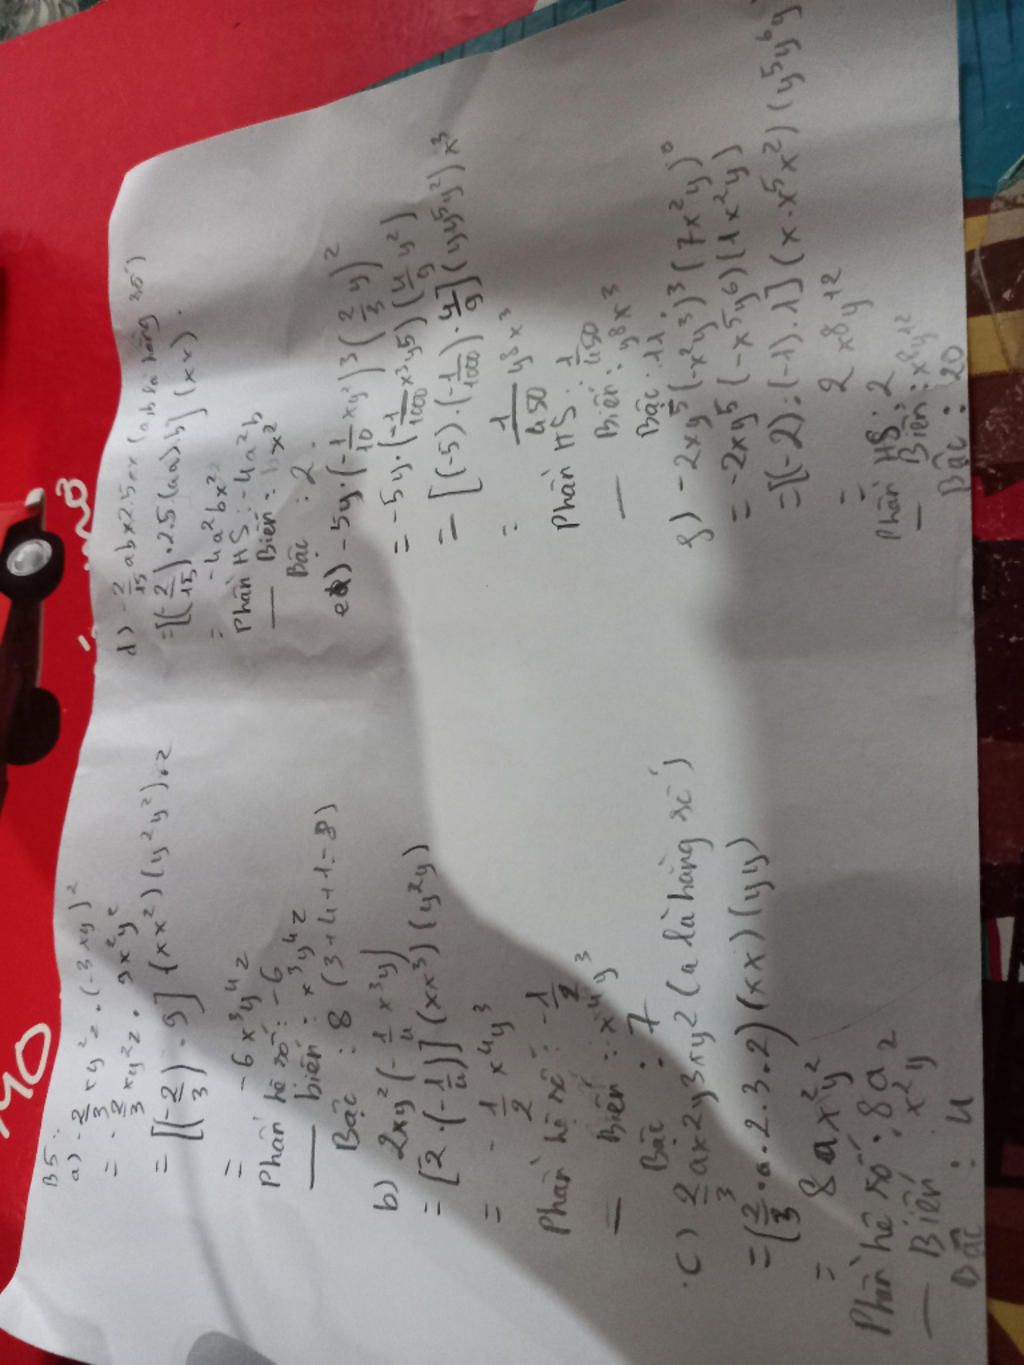 B5:
a) -2/3 xy²z . (-3xy)²
= -2/3 xy²z . 9x²y²
= [(-2/3) . 9] (xx²)(y²y²).z
= -6x³y⁴z
Phần hệ số: -6
— biến: x³y⁴z
Bậc : 8 (3+4+1=8)
b) 2xy² (-1/4 x³y)
= [2 . (-1/4)] (xx³) (y²y)
= -1/2 x⁴y³
Phần hệ số: -1/2
— Biến: x⁴y³
Bậc : 7
c) 2/3 ax2y3xy2 (a là hằng số)
= (2/3 . a . 2 . 3 . 2) (xx) (yy)
= 8ax²y²
Phần hệ số: 8a
— Biến: x²y²
Bậc : 4
d) -2/15 abx2.5ax (a,b là hằng số)
= [(-2/15) . 2.5 (aa).b] (xx).
= -4a²bx²
Phần HS: -4a²b
— Biến: x²
Bậc : 2.
e) -5y.(-1/10 xy²)³ (2/3 y)²
= -5y.(-1/1000 x³y5) (4/9 y²)
= [(-5).(-1/1000).4/9] (yy⁵y²) x³
= 1/450 y⁸x³
Phần HS: 1/450
— Biến: y⁸x³
Bậc: 11.
g) -2xy⁵ (-x²y³)³ (7x²y)⁰
= -2xy⁵ (-x⁵y⁶) (1x²y)
= [(-2).(-1).1] (x.x⁵x²) (y⁵y⁶y
= 2x⁸y¹²
Phần HS: 2
— Biến: x⁸y¹²
Bậc : 20